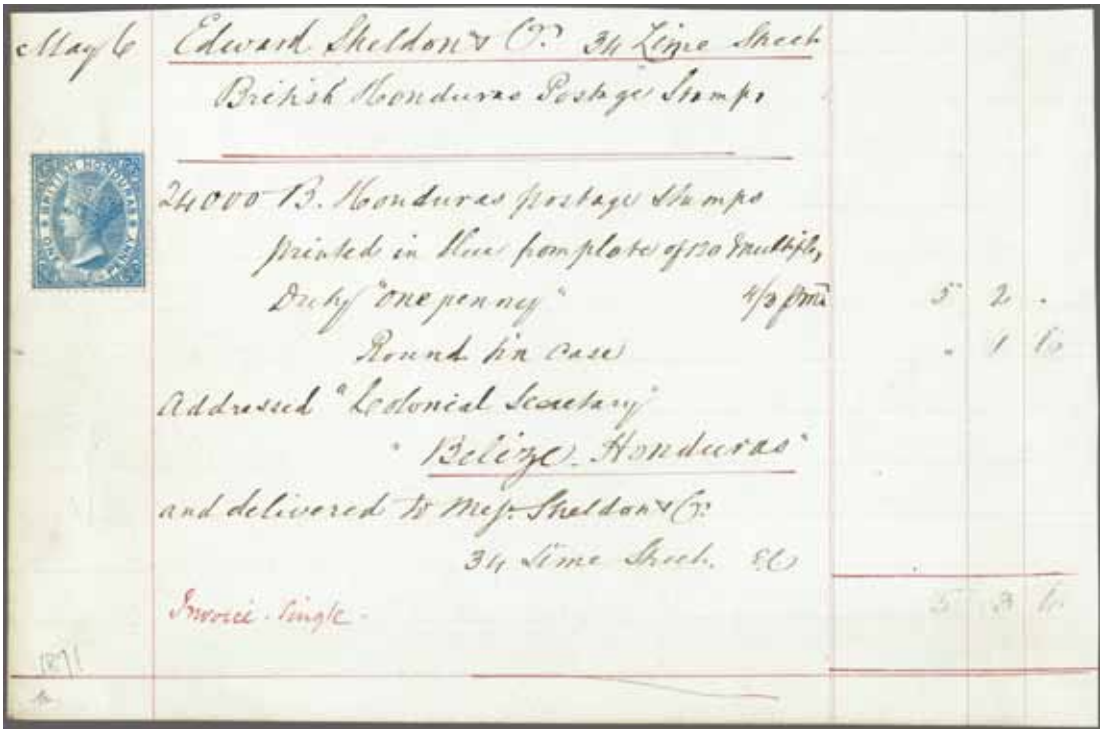 May 6 Edward Sheldon & Co. 34 Lime Street
British Honduras Postage Stamps
BRITISH HONDURAS ONE PENNY
24000 B. Honduras postage stamps
printed in blue from plate of 120 multiple,
Duty "one penny" 4/3 5 2 .
Round tin case " 1 6
Addressed "Colonial Secretary
" Belize. Honduras"
and delivered to Messr. Sheldon & Co.
34 Lime Street. EC
Invoice. Single. 5 6
1871